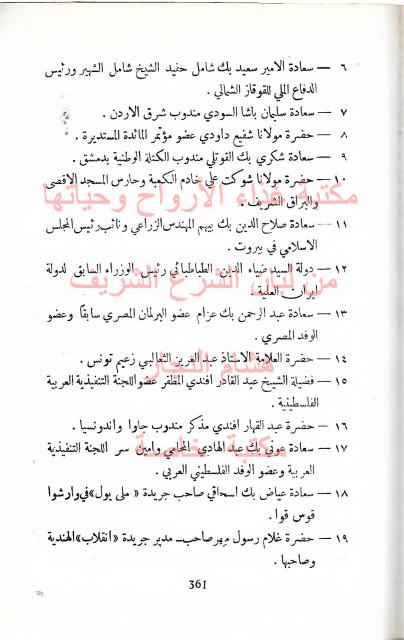 ٦ — سعادة الامير سعيد بك شامل حفيد الشيخ شامل الشهير ورئيس
الدفاع الملي للقوقاز الشمالي .
٧ — سعادة سليمان باشا السودي مندوب شرق الاردن .
٨ — حضرة مولانا شفيع داودي عضو مؤتمر المائدة المستديرة .
٩ — سعادة شكري بك القوتلي مندوب الكتلة الوطنية بدمشق .
١٠ — حضرة مولانا شوكت علي خادم الكعبة وحارس المسجد الاقصى
مكتبة غذاء الأرواح وحياتها
والبراق الشريف .
١١ — سعادة صلاح الدين بك بيهم المهندس الزراعي ونائب رئيس المجلس
الاسلامي في بيروت .
١٢ — دولة السيد ضياء الدين الطباطبائي رئيس الوزراء السابق لدولة
من لبان الشرع الشريف
ايران العلية .
١٣ — سعادة عبد الرحمن بك عزام عضو البرلمان المصري سابقاً وعضو
الوفد المصري .
١٤ — حضرة العلامة الاستاذ عبد العزيز الثعالبي زعيم تونس .
هشام النجار
١٥ — فضيلة الشيخ عبد القادر افندي المظفر عضو اللجنة التنفيذية العربية
الفلسطينية .
١٦ — حضرة عبد القهار افندي مذكر مندوب جاوا واندونسيا .
مكتبة خاصة
١٧ — سعادة عوني بك عبد الهادي المحامي وامين سر اللجنة التنفيذية
العربية وعضو الوفد الفلسطيني العربي .
١٨ — سعادة عياض بك اسحاقي صاحب جريدة « ملى يول » في وارشوا
قوس قوا .
١٩ — حضرة غلام رسول مهر صاحب — مدير جريدة «انقلاب» الهندية
وصاحبها .
361